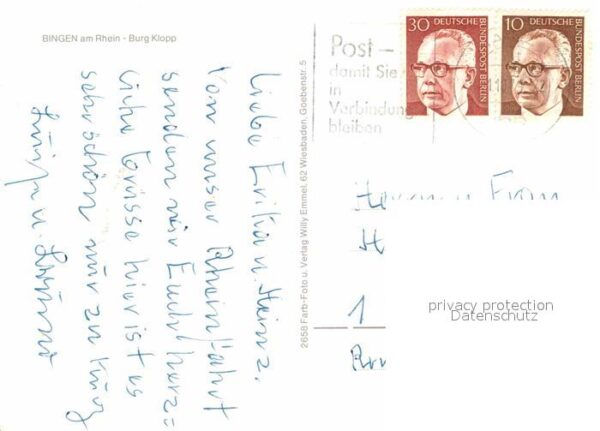 BINGEN am Rhein - Burg Klopp
Liebe Erika u. Heinz.
Von unser Rheinfahrt
senden wir Euch herz=
liche Grüsse hier ist es
sehr schön nur zu kurz
u.
2658 Farb-Foto u. Verlag Willy Emmel, 62 Wiesbaden, Goebenstr. 5
Post -
damit Sie
in
Verbindung
bleiben
30 DEUTSCHE BUNDESPOST BERLIN
10 DEUTSCHE BUNDESPOST BERLIN
Herrn u. Frau
H
1
privacy protection
Datenschutz